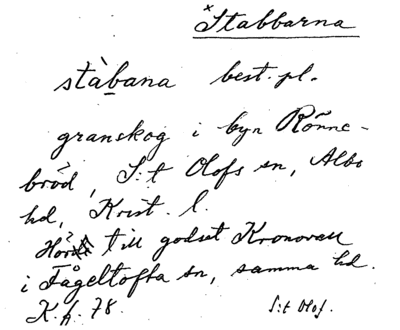 ×Stabbarna
stàbana best. pl.
granskog i byn Rönne-
bröd, S:t Olofs sn, Albo
hd, Krist. l.
Hör till godset Kronovall
i Fågeltofta sn, samma hd.
K. h. 78. S:t Olof.